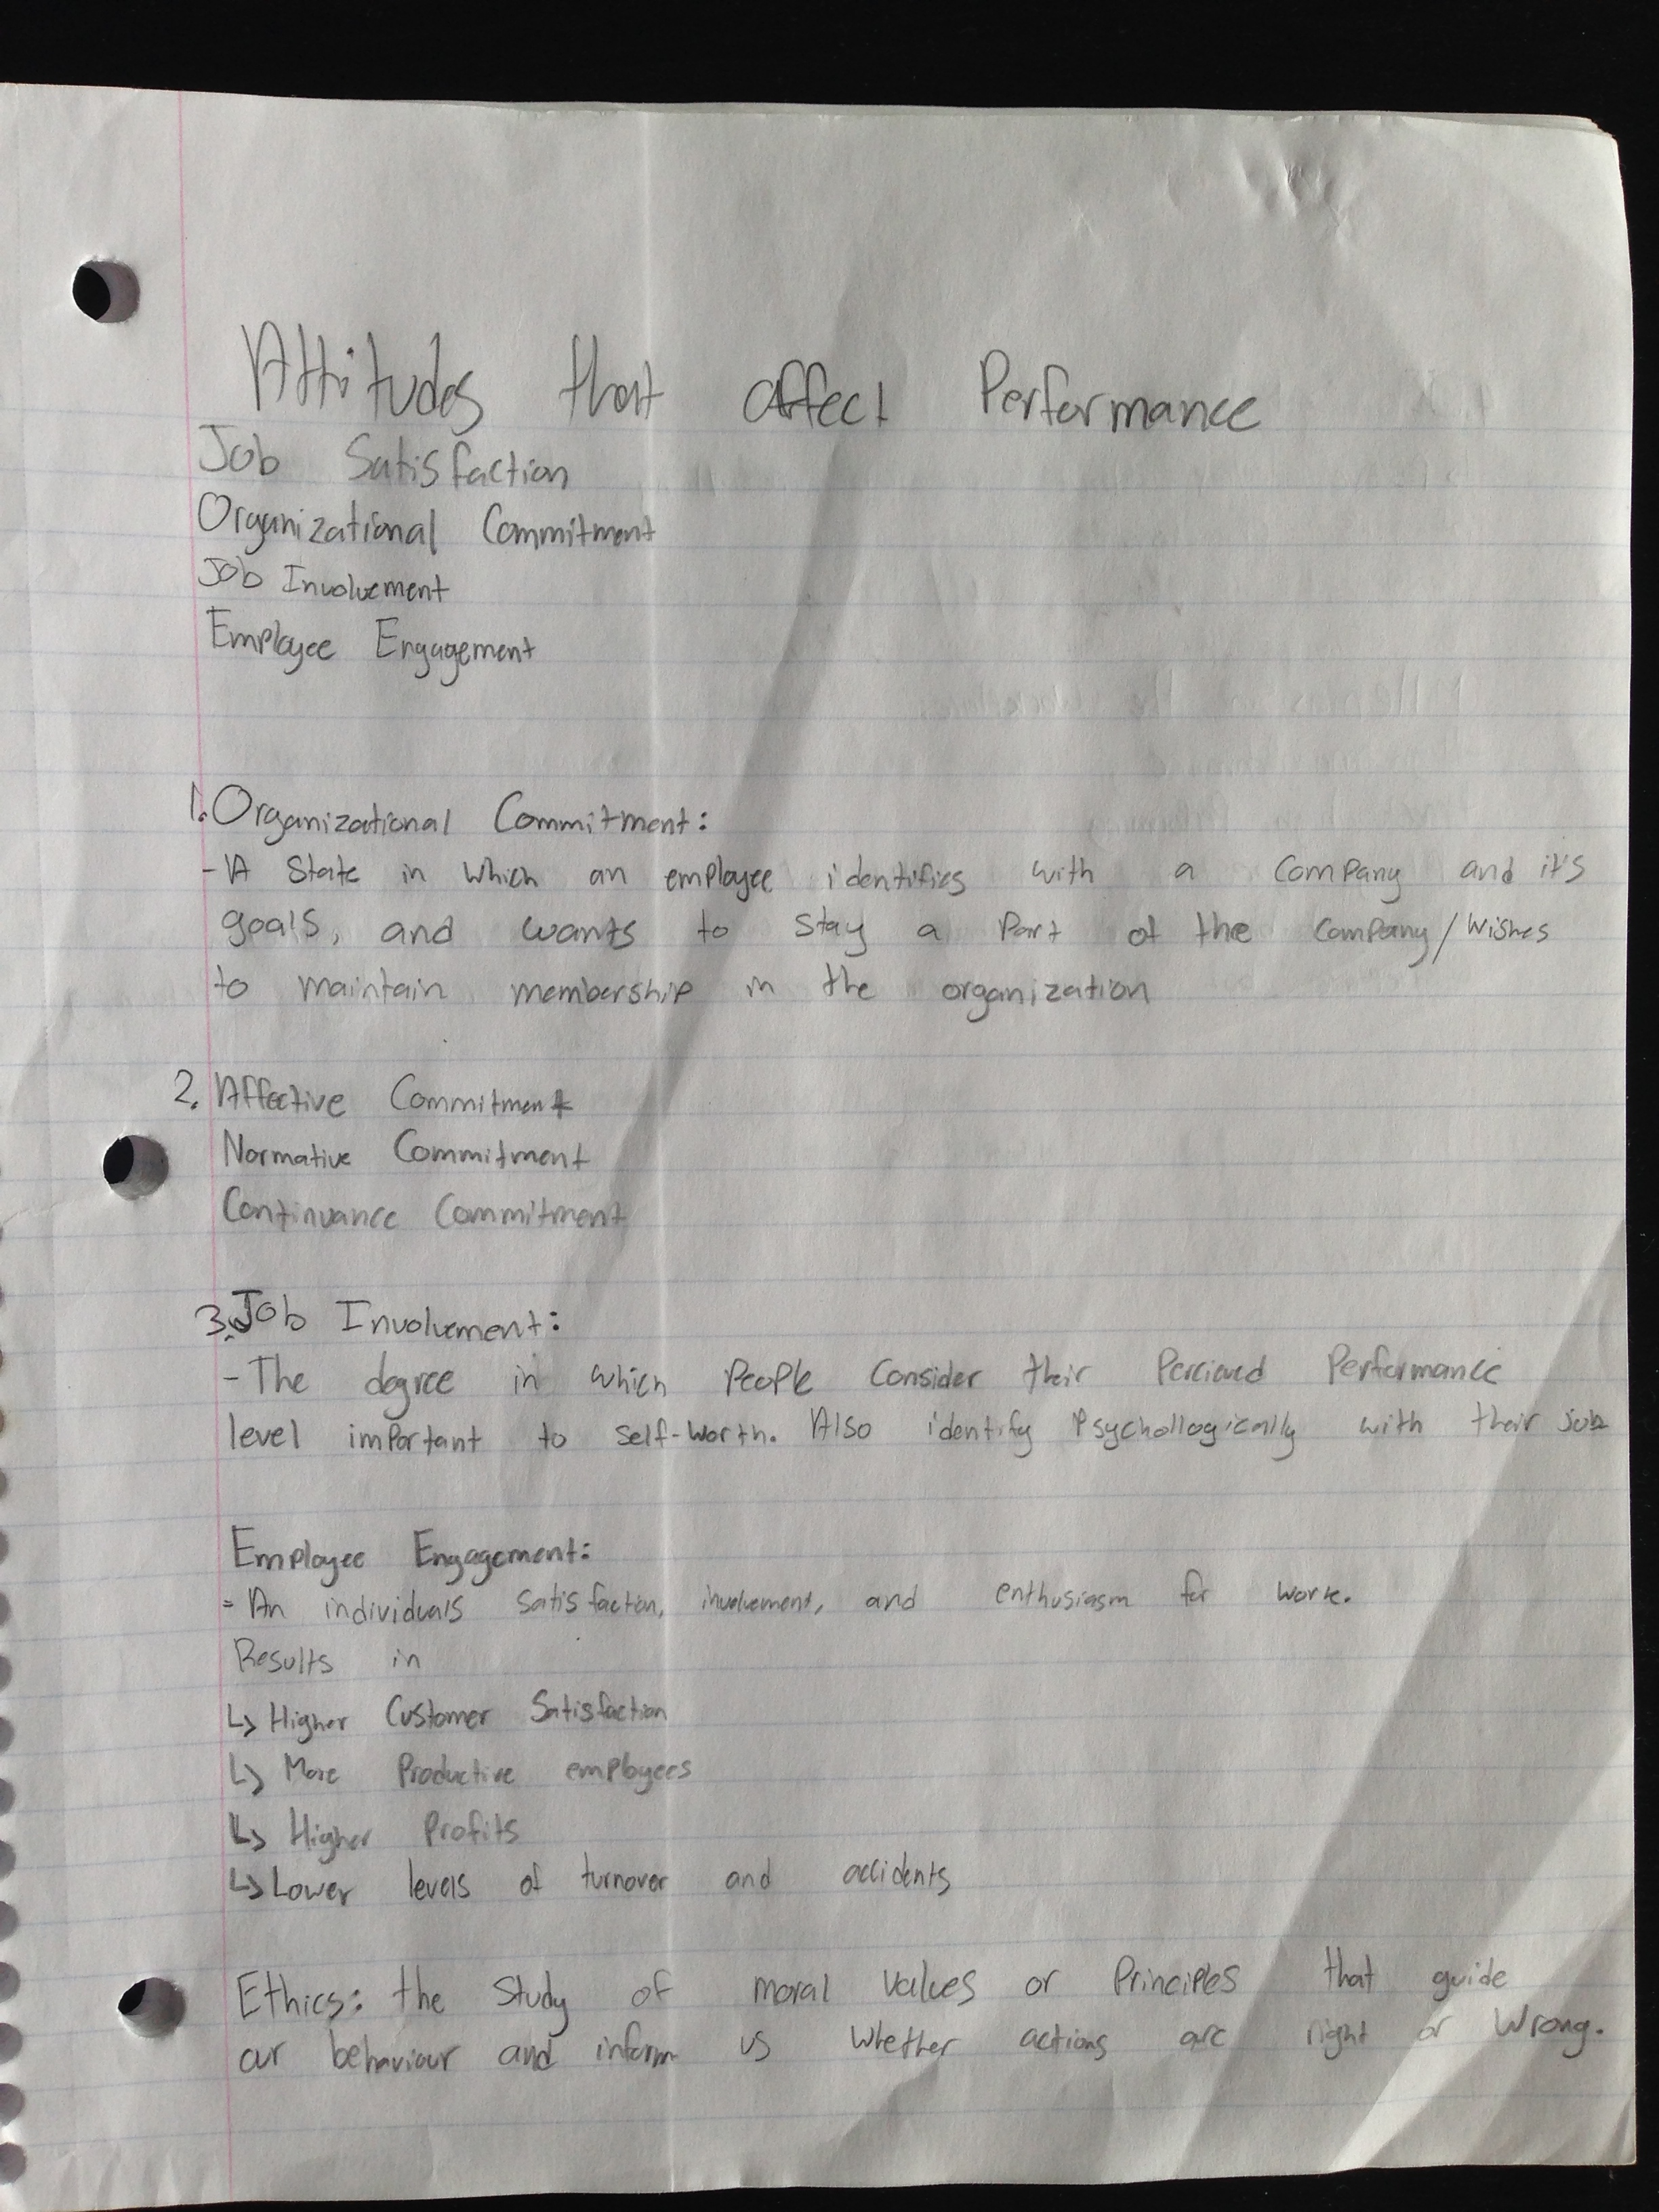 Attitudes that affect Performance
Job Satisfaction
Organizational Commitment
Job Involvement
Employee Engagement
1. Organizational Commitment:
- A State in which an employee identifies with a Company and it's
goals, and wants to stay a Part of the Company/Wishes
to maintain membership in the organization
2. Affective Commitment
Normative Commitment
Continuance Commitment
3. Job Involvement:
- The degree in which People Consider their Percieved Performance
level important to self-worth. Also identify Psychollogically with their job
Employee Engagement:
- An individuals satisfaction, involvement, and enthusiasm for work.
Results in
↳ Higher Customer Satisfaction
↳ More Productive employees
↳ Higher Profits
↳ Lower levels of turnover and accidents
Ethics: the study of moral values or Principles that guide
our behaviour and inform us whether actions are right or wrong.